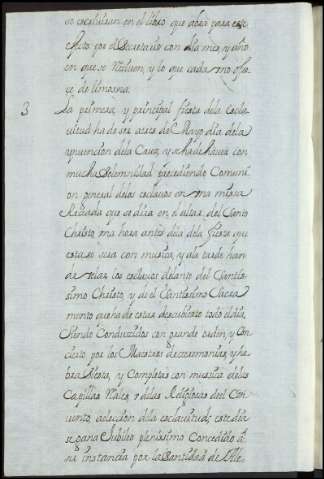 se escribiran en el libro que abra para este
efecto por el Secretario con dia mes, y año
en que se reciven, y lo que cada uno ofre
ze de limosna.
3 La primera, y principal fiesta dela escla
vitud ha de ser atres de Mayo dia dela
aparicion dela Cruz, y se ha de hacer con
mucha Solemnidad precediendo Comuni
on general delos esclavos en una missa
Rezada que se dira en el altar del Santo
Christo una hora antes dela dela fiesta que
esta se sera con musica, y ala tarde han
de velar los esclavos delante del Santis
simo Christo, y de el Santissimo Sacra
mento que ha de estar descubierto todo el dia,
siendo Conducidos con grande orden, y con
cierto por los Maestros de ceremonias, y ha
bra Siesta, y Completas con musica delas
Capillas Reales o delas Religiosas del Con
vento aeleccion dela esclavitud; este dia
se gana Jubileo plenissimo Concedido a
na instancia por la Santidad de Ale